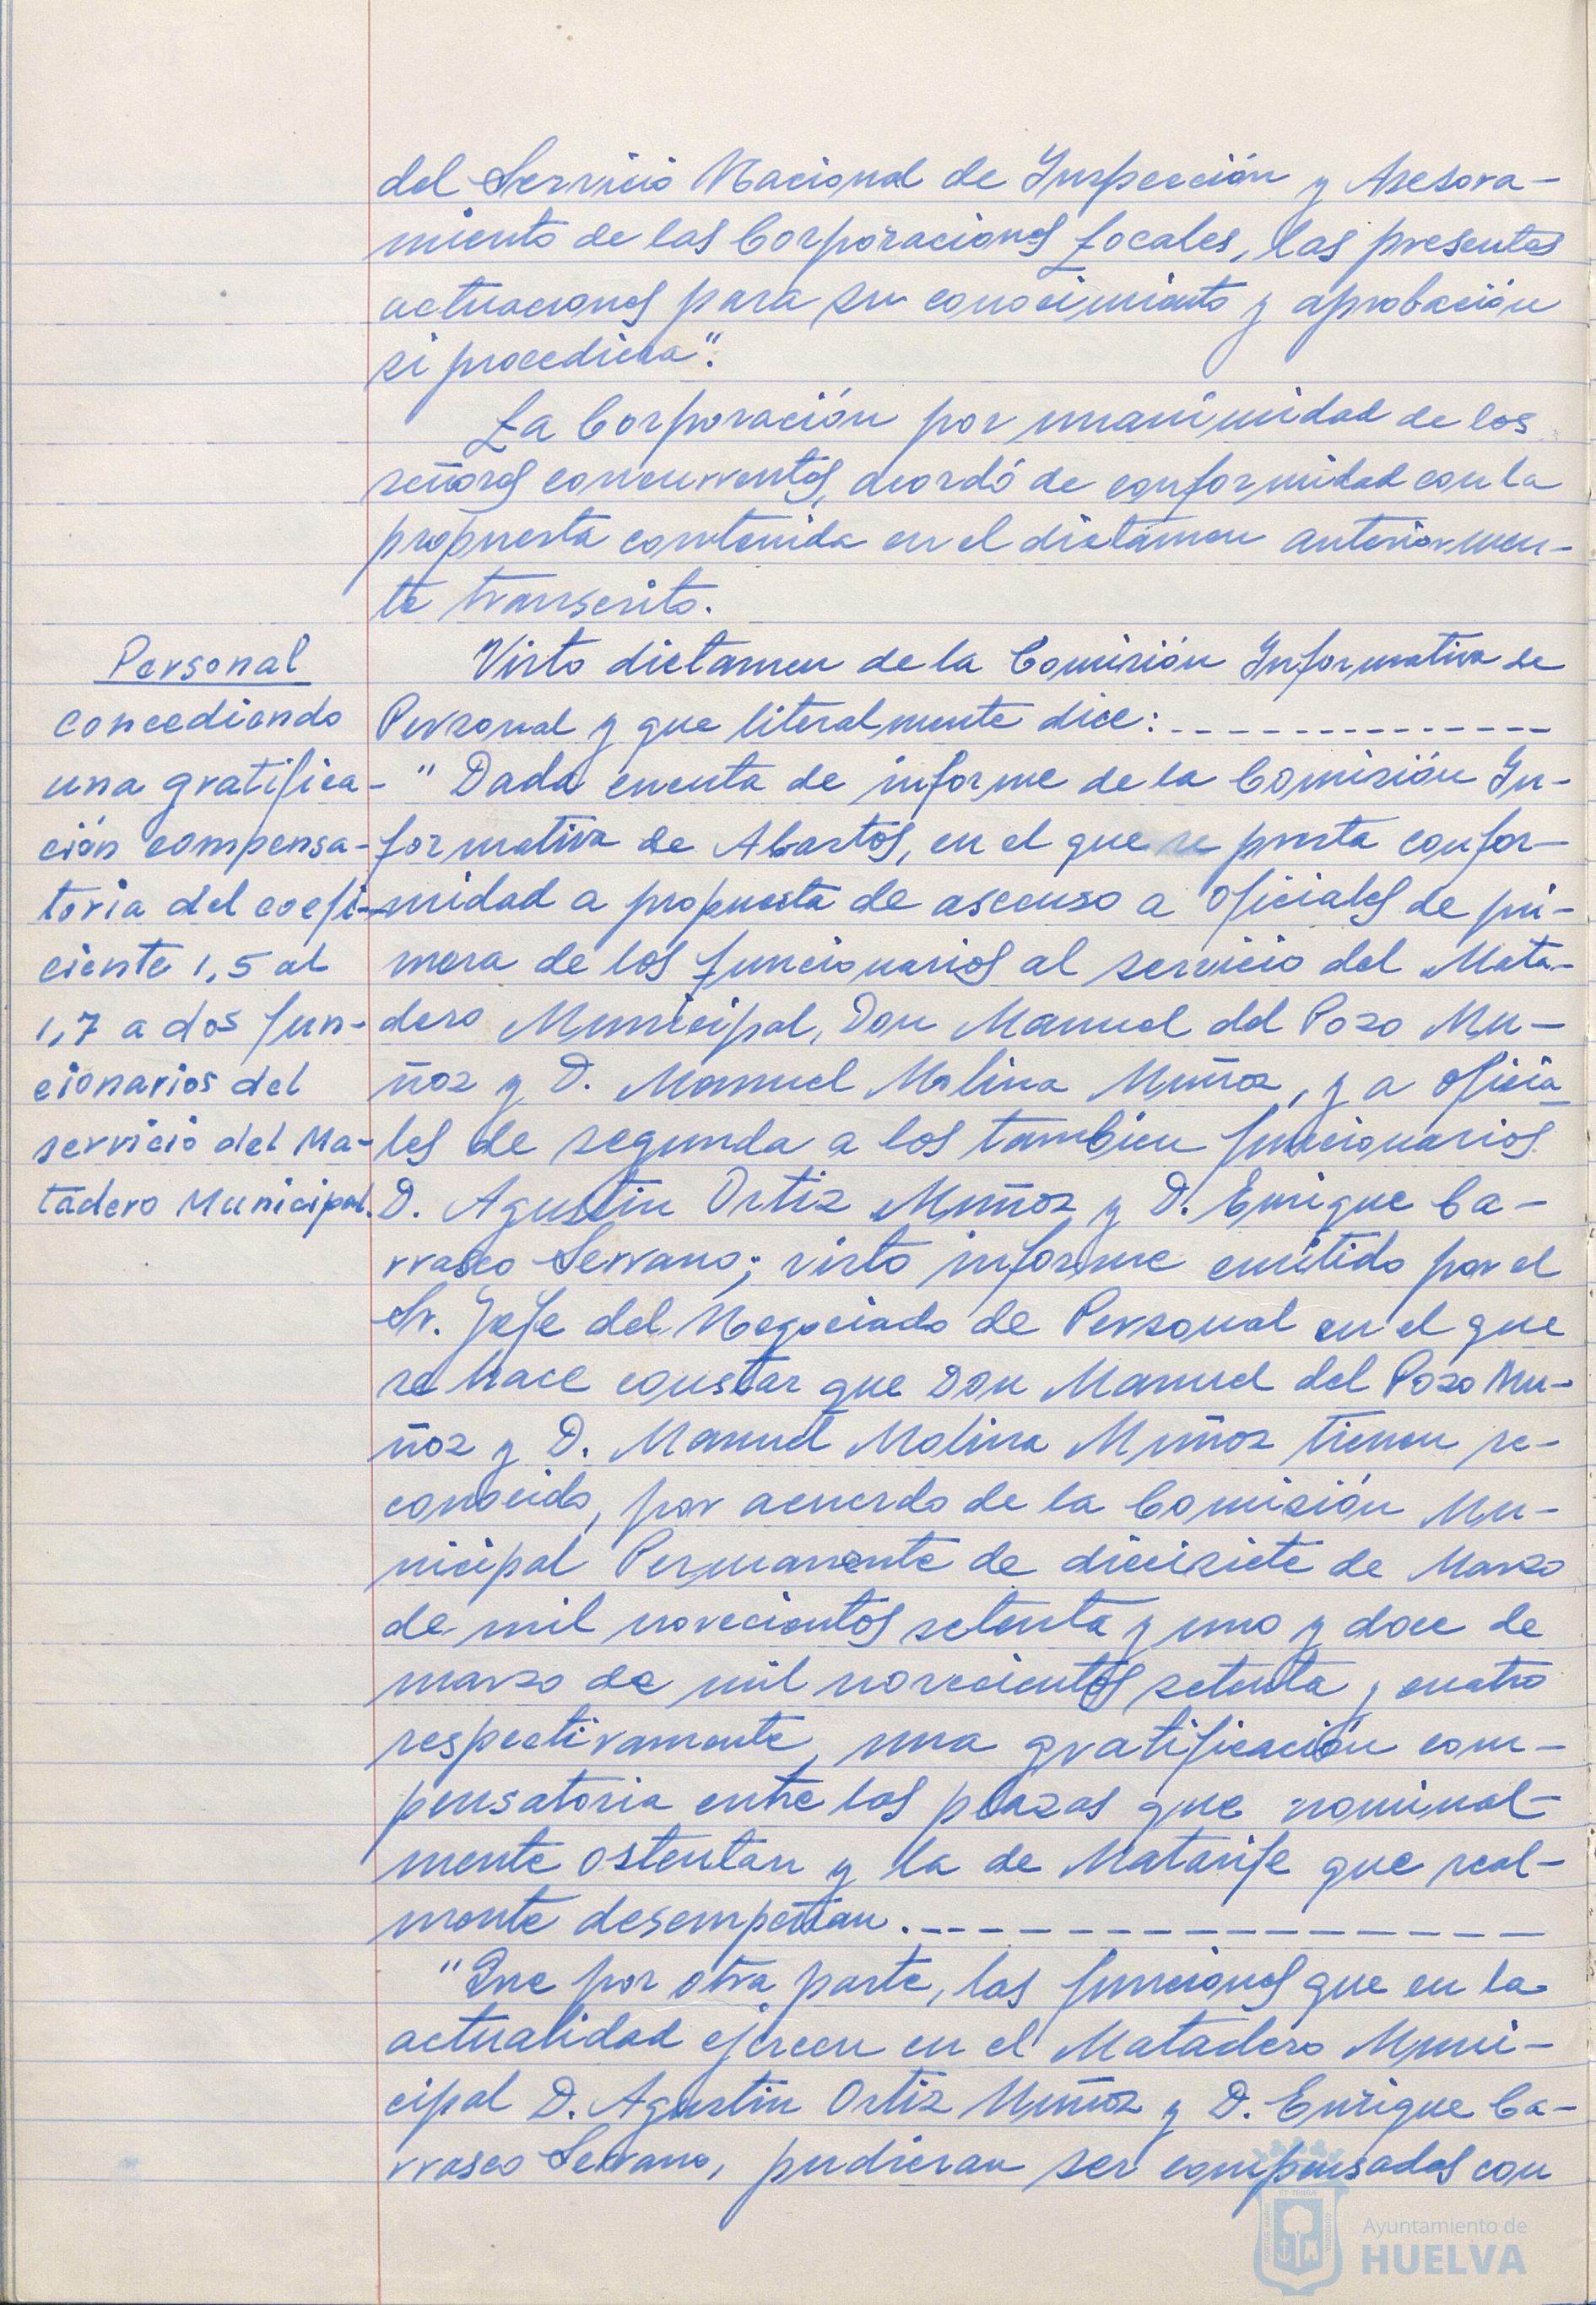 del Servicio Nacional de Inspección y Asesora-
miento de las Corporaciones Locales, las presentes
actuaciones para su conocimiento y aprobación
si procediera".
La Corporación por unanimidad de los
señores concurrentes, acordó de conformidad con la
propuesta contenida en el dictamen anteriormen-
te transcrito.
Personal
concediendo
una gratifica-
ción compensa-
toria del coefi-
ciente 1,5 al
1,7 a dos fun-
cionarios del
servicio del Ma-
tadero Municipal.
Visto dictamen de la Comisión Informativa de
Personal y que literalmente dice: - - - - - - - - - - - - - -
"Dada cuenta de informe de la Comisión In-
formativa de Abastos, en el que se presta confor-
midad a propuesta de ascenso a oficiales de pri-
mera de los funcionarios al servicio del Mata-
dero Municipal, Don Manuel del Pozo Mu-
ñoz y D. Manuel Molina Muñoz, y a oficia
les de segunda a los tambien funcionarios
D. Agustin Ortiz Muñoz y D. Enrique Ca-
rrasco Serrano; visto informe emitido por el
Sr. Jefe del Negociado de Personal en el que
se hace constar que Don Manuel del Pozo Mu-
ñoz y D. Manuel Molina Muñoz tienen re-
conocido, por acuerdo de la Comisión Mu-
nicipal Permanente de diecisiete de Marzo
de mil novecientos setenta y uno y doce de
marzo de mil novecientos setenta y cuatro
respectivamente, una gratificación com-
pensatoria entre las plazas que nominal-
mente ostentan y la de Matarife que real-
mente desempeñan. - - - - - - - - - - - - - - -
"Que por otra parte, las funciones que en la
actualidad ejercen en el Matadero Muni-
cipal D. Agustin Ortiz Muñoz y D. Enrique Ca-
rrasco Serrano, pudieran ser compensadas con
Ayuntamiento de
HUELVA